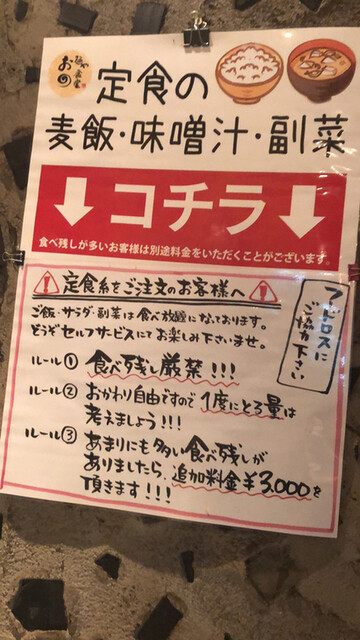 定食の
麦飯・味噌汁・副菜
コチラ
食べ残しが多いお客様は別途料金をいただくことがございます。
定食系をご注文のお客様へ
ご飯・サラダ・副菜は食べ放題になっております。
どうぞセルフサービスにてお楽しみ下さいませ。
フードロスに
ご協力下さい
ルール① 食べ残し厳禁!!!
ルール② おかわり自由ですので1度にとる量は
考えましょう!!!
ルール③ あまりにも多い食べ残しが
ありましたら、追加料金¥3,000を
頂きます!!!